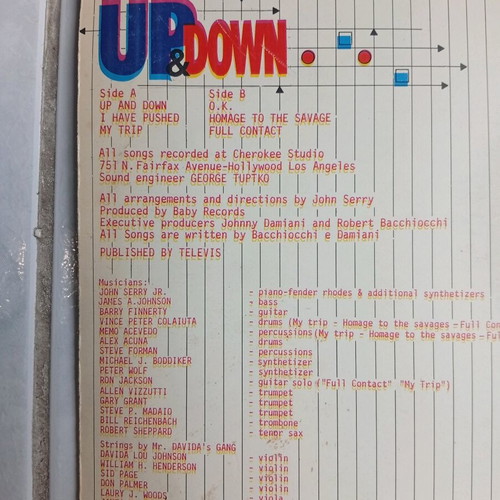 UP & DOWN
Side A Side B
UP AND DOWN O.K.
I HAVE PUSHED HOMAGE TO THE SAVAGE
MY TRIP FULL CONTACT
All songs recorded at Cherokee Studio
751 N. Fairfax Avenue-Hollywood Los Angeles
Sound engineer GEORGE TUPTKO
All arrangements and directions by John Serry
Produced by Baby Records
Executive producers Johnny Damiani and Robert Bacchiocchi
All Songs are written by Bacchiocchi e Damiani
PUBLISHED BY TELEVIS
Musicians:
JOHN SERRY JR. - piano-fender rhodes & additional synthetizers
JAMES A.JOHNSON - bass
BARRY FINNERTY - guitar
VINCE PETER COLAIUTA - drums (My trip - Homage to the savages - Full Con
MEMO ACEVEDO - percussions (My trip - Homage to the savages - Ful
ALEX ACUNA - drums
STEVE FORMAN - percussions
MICHAEL J. BODDIKER - synthetizer
PETER WOLF - synthetizer
RON JACKSON - guitar solo ("Full Contact" "My Trip")
ALLEN VIZZUTTI - trumpet
GARY GRANT - trumpet
STEVE P. MADAIO - trumpet
BILL REICHENBACH - trombone
ROBERT SHEPPARD - tenor sax
Strings by Mr. DAVIDA's GANG
DAVIDA LOU JOHNSON - violin
WILLIAM H. HENDERSON - violin
SID PAGE - violin
DON PALMER - violin
LAURY J. WOODS - viola